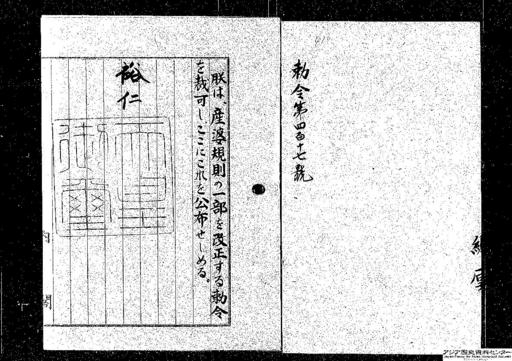 勅令第四百十七號
朕は、産婆規則の一部を改正する勅令
を裁可し、ここにこれを公布せしめる。
裕仁
天皇
御璽
内閣
アジア歴史資料センター